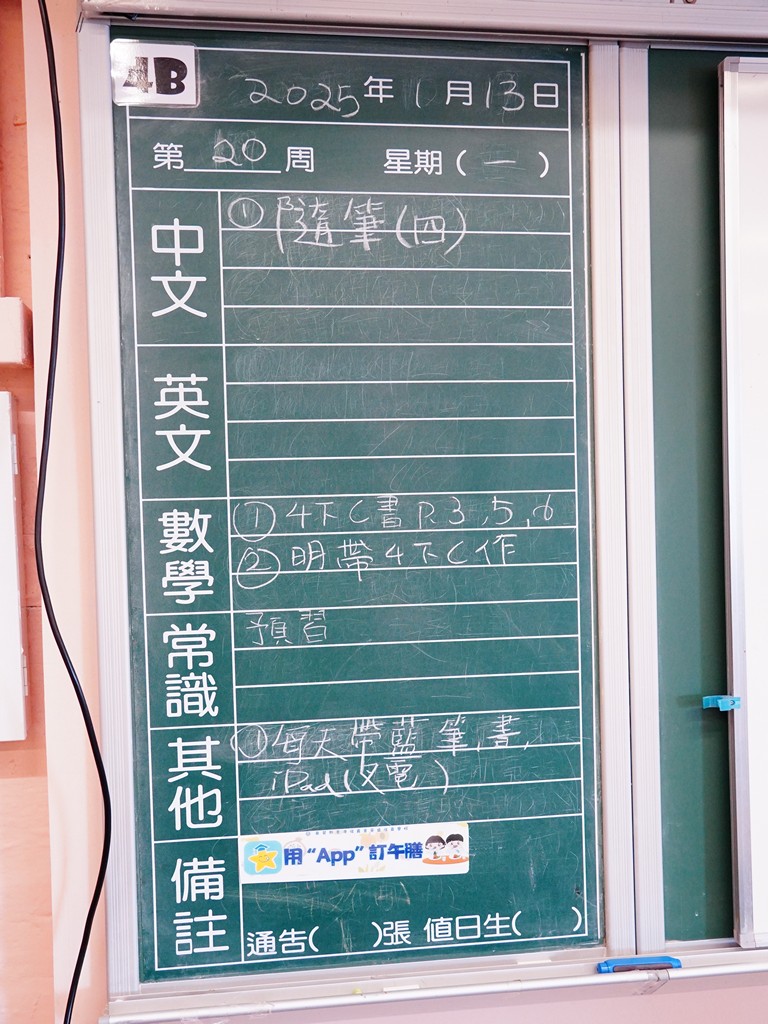 4B
2025年1月13日
第 20 周 星期(一)
中文
① 隨筆(四)
英文
數學
① 4下C書 P.3,5,6
② 明帶4下C作
常識
預習
其他
① 每天帶藍筆,書,
iPad(叉電)
備註
用“App”訂午膳
通告( )張 值日生( )